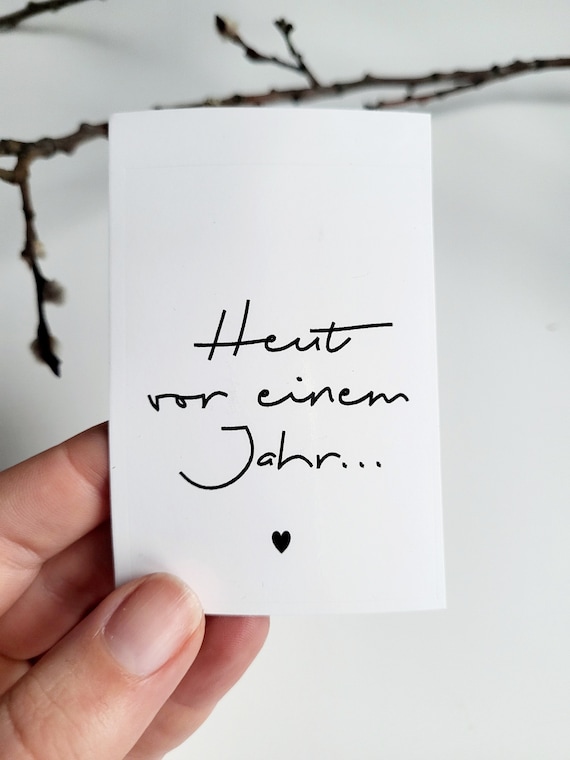 Heut
vor einem
Jahr...